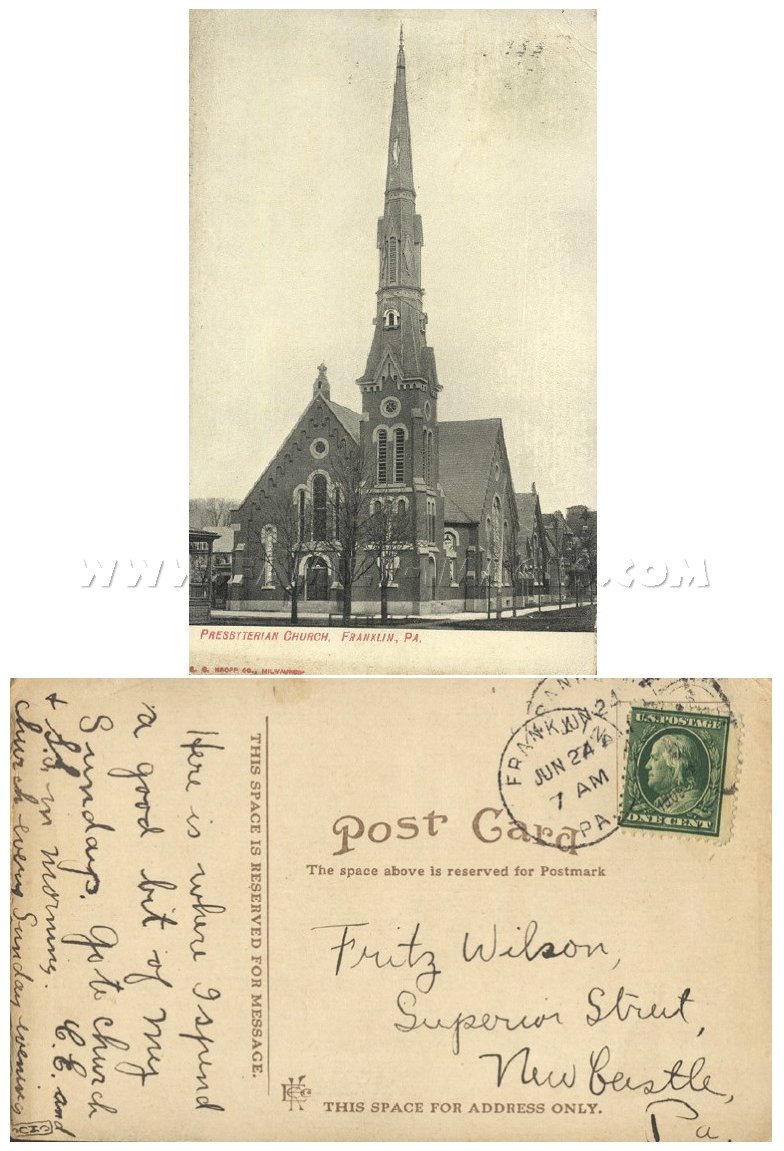 PRESBYTERIAN CHURCH, FRANKLIN, PA.
CO., MILWAUKEE
WWW. .COM
Here is where I spend
a good bit of my
Sundays. Go to church
& S.S. in morning.
C.E. and
church every Sunday evening
THIS SPACE IS RESERVED FOR MESSAGE.
FRANKLIN
JUN 24
7 AM
PA.
JUN 24
U.S. POSTAGE
ONE CENT
Post Card
The space above is reserved for Postmark
Fritz Wilson,
Superior Street,
New Castle,
Pa.
THIS SPACE FOR ADDRESS ONLY.